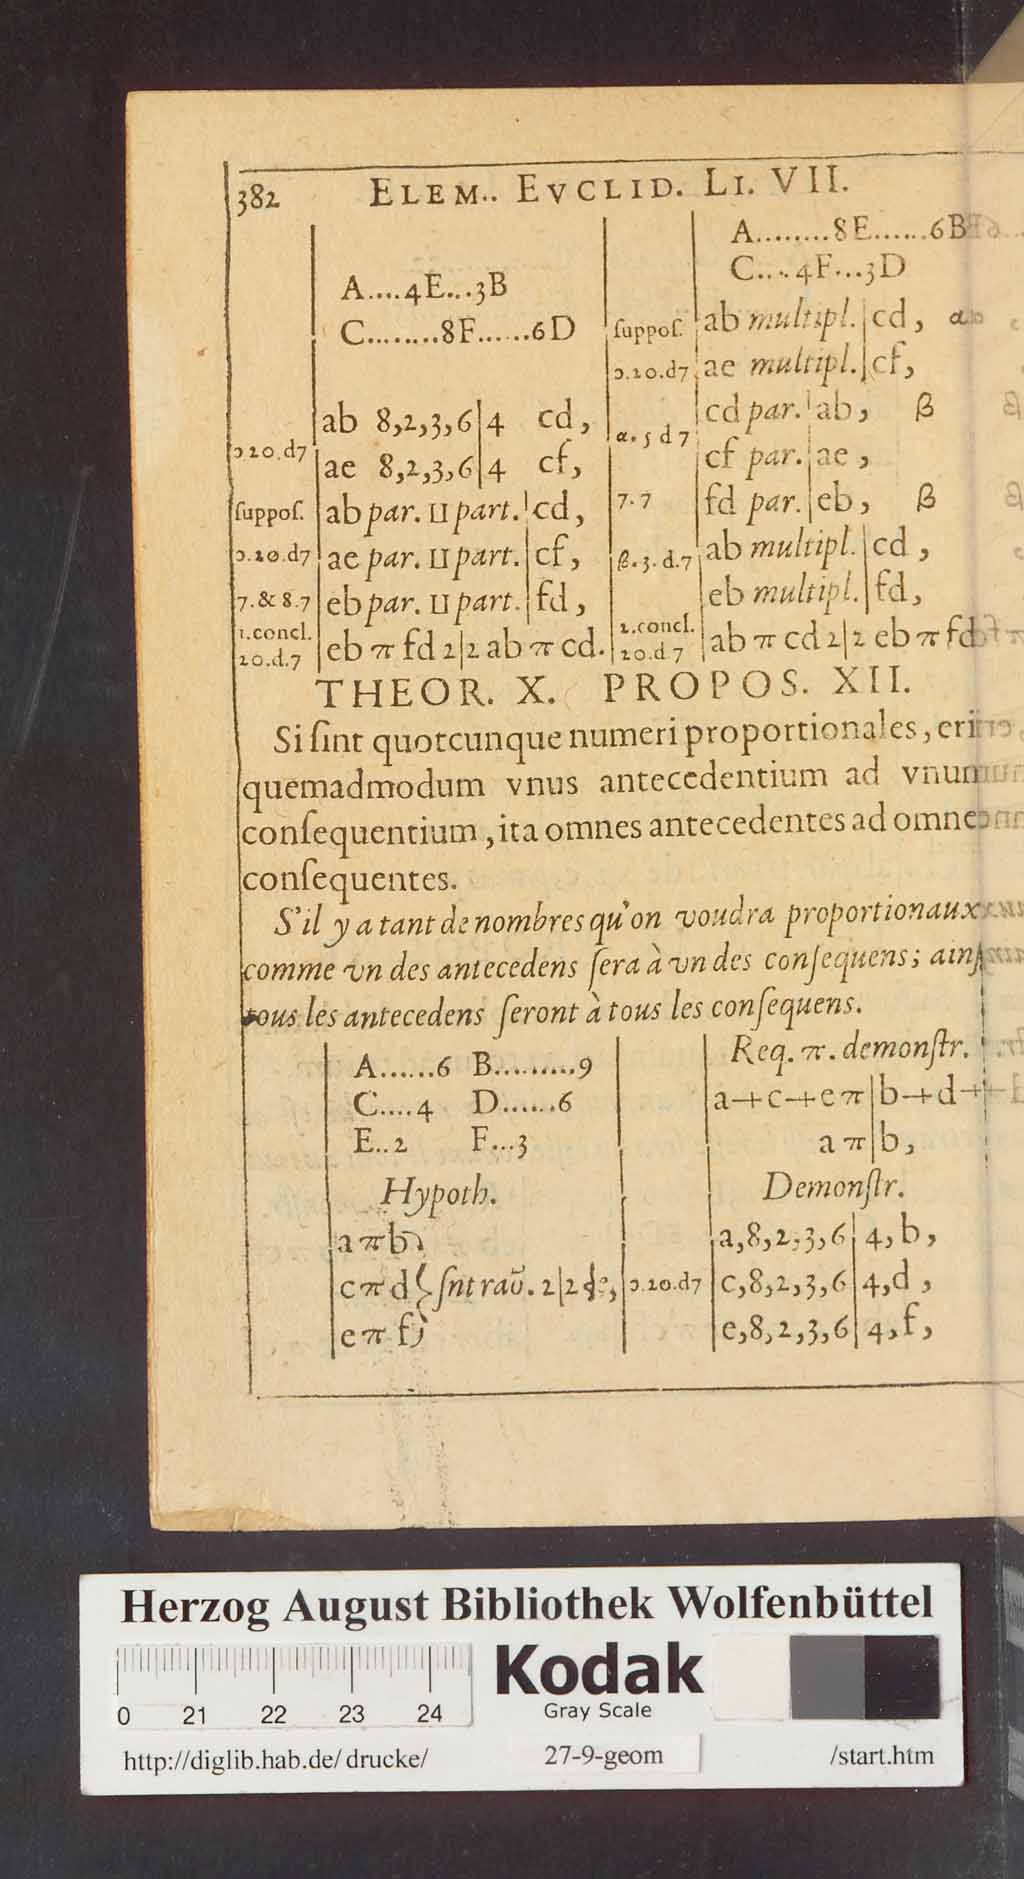 382 ELEM.. EVCLID. LI. VII.
A....4E...3B
C........8F......6D
ab 8,2,3,6|4 cd,
ɔ 20.d7 ae 8,2,3,6|4 cf,
ſuppoſ. ab par. ⊔ part.|cd,
ɔ.20.d7 ae par. ⊔ part.|cf,
7.&8.7 eb par. ⊔ part.|fd,
1.concl.
20.d.7 eb π fd 2|2 ab π cd.
A........8E......6B
C....4F...3D
ſuppoſ. ab multipl.|cd, α
ɔ.20.d7 ae multipl.|cf,
cd par.|ab, β
α.5 d 7 cf par.|ae,
7.7 fd par.|eb, β
β.3.d.7 ab multipl.|cd,
eb multipl.|fd,
2.concl.
20.d 7 ab π cd 2|2 eb π fd
THEOR. X. PROPOS. XII.
Si ſint quotcunque numeri proportionales, eri
quemadmodum vnus antecedentium ad vnum
conſequentium, ita omnes antecedentes ad omne
conſequentes.
S'il y a tant de nombres qu'on voudra proportionaux
comme vn des antecedens ſera à vn des conſequens; ainſ
tous les antecedens ſeront à tous les conſequens.
A......6 B.........9
C....4 D......6
E..2 F...3
Hypoth.
a π b
c π d } ſnt raũ. 2|2 de,
e π f
Req. π. demonſtr.
a+c+e π|b+d+
a π|b,
Demonſtr.
a,8,2,3,6|4,b,
ɔ.20.d7 c,8,2,3,6|4,d,
e,8,2,3,6|4,f,
Herzog August Bibliothek Wolfenbüttel
0 21 22 23 24
Kodak
Gray Scale
http://diglib.hab.de/drucke/ 27-9-geom /start.htm